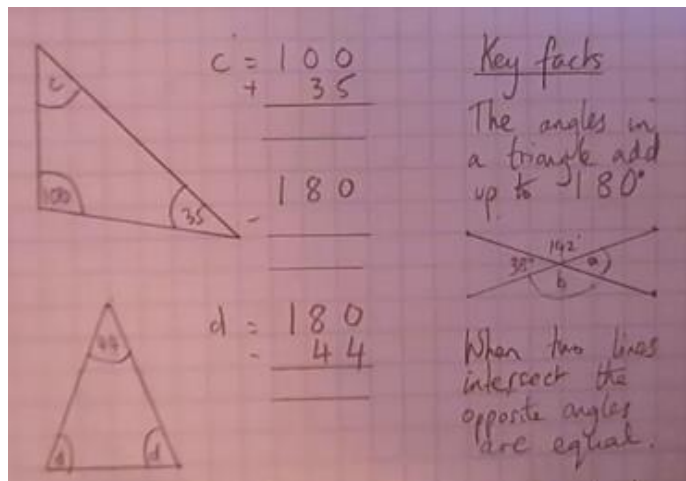 c = 100
+ 35
180
-
c
100
35
d = 180
- 44
44
d
d
Key facts
The angles in
a triangle add
up to 180°
142°
38° a
b
When two lines
intersect the
opposite angles
are equal.